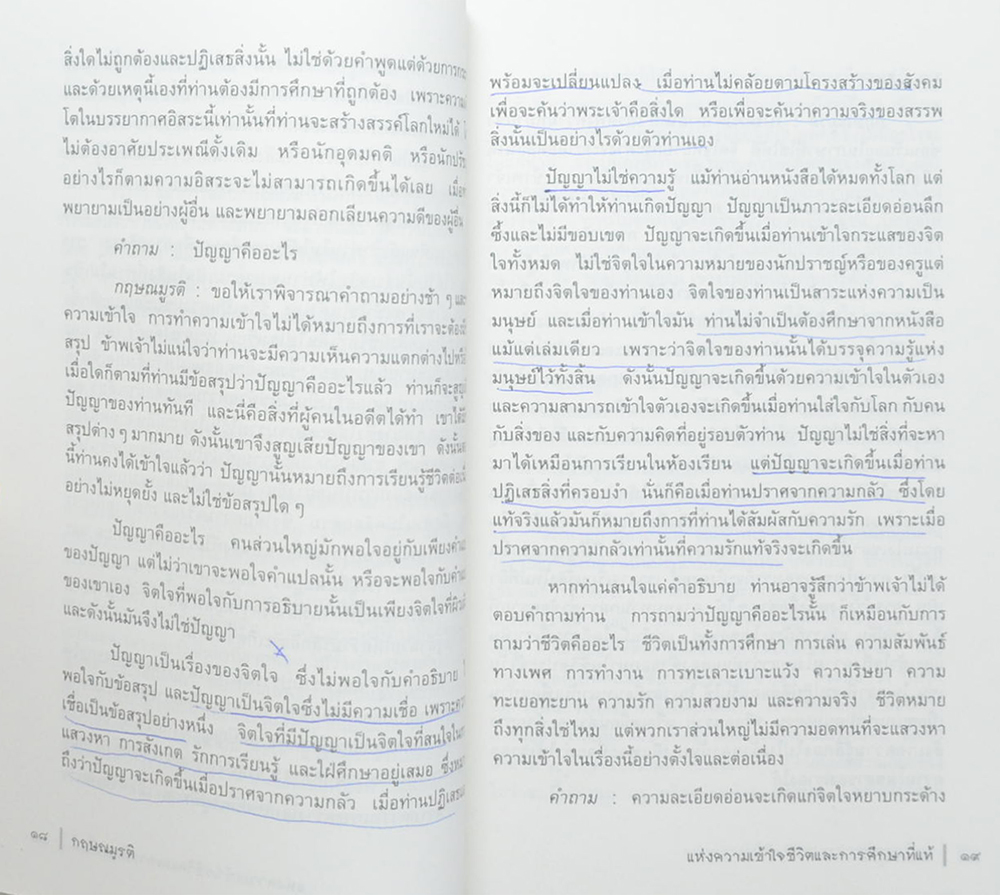 สิ่งใดไม่ถูกต้องและปฏิเสธสิ่งนั้น ไม่ใช่ด้วยคำพูดแต่ด้วยการกระ
และด้วยเหตุนี้เองที่ท่านต้องมีการศึกษาที่ถูกต้อง เพราะความ
โตในบรรยากาศอิสระนี้เท่านั้นที่ท่านจะสร้างสรรค์โลกใหม่ได้
ไม่ต้องอาศัยประเพณีดั้งเดิม หรือนักอุดมคติ หรือนักปรัช
อย่างไรก็ตามความอิสระจะไม่สามารถเกิดขึ้นได้เลย
พยายามเป็นอย่างผู้อื่น และพยายามลอกเลียนความดีของผู้อื่น
คำถาม : ปัญญาคืออะไร
กฤษณมูรติ : ขอให้เราพิจารณาคำถามอย่างช้า ๆ และ
ความเข้าใจ การทำความเข้าใจไม่ได้หมายถึงการที่เราจะต้อง
สรุป ข้าพเจ้าไม่แน่ใจว่าท่านจะมีความเห็นความแตกต่างไป
เมื่อใดก็ตามที่ท่านมีข้อสรุปว่าปัญญาคืออะไรแล้ว ท่านก็จะ
ปัญญาของท่านทันที และนี่คือสิ่งที่ผู้คนในอดีตได้ทำ เขาได้
สรุปต่าง ๆ มากมาย ดังนั้นเขาจึงสูญเสียปัญญาของเขา ดังนั้น
นี้ท่านคงได้เข้าใจแล้วว่า ปัญญานั้นหมายถึงการเรียนรู้ชีวิต
อย่างไม่หยุดยั้ง และไม่ใช่ข้อสรุปใด ๆ
ปัญญาคืออะไร คนส่วนใหญ่มักพอใจอยู่กับเพียงคำ
ของปัญญา แต่ไม่ว่าเขาจะพอใจคำแปลนั้น หรือจะพอใจกับคำ
ของเขาเอง จิตใจที่พอใจกับการอธิบายนั้นเป็นเพียงจิตใจที่
และดังนั้นมันจึงไม่ใช่ปัญญา
ปัญญาเป็นเรื่องของจิตใจ ซึ่งไม่พอใจกับคำอธิบาย
พอใจกับข้อสรุป และปัญญาเป็นจิตใจซึ่งไม่มีความเชื่อ เพราะ
เชื่อเป็นข้อสรุปอย่างหนึ่ง จิตใจที่มีปัญญาเป็นจิตใจที่สนใจใน
แสวงหา การสังเกต รักการเรียนรู้ และใฝ่ศึกษาอยู่เสมอ ซึ่ง
ถึงว่าปัญญาจะเกิดขึ้นเมื่อปราศจากความกลัว เมื่อท่านปฏิเสธ
๑๘ | กฤษณมูรติ
พร้อมจะเปลี่ยนแปลง เมื่อท่านไม่คล้อยตามโครงสร้างของสังคม
เพื่อจะค้นว่าพระเจ้าคือสิ่งใด หรือเพื่อจะค้นว่าความจริงของสรรพ
สิ่งนั้นเป็นอย่างไรด้วยตัวท่านเอง
ปัญญาไม่ใช่ความรู้ แม้ท่านอ่านหนังสือได้หมดทั้งโลก แต่
สิ่งนี้ก็ไม่ได้ทำให้ท่านเกิดปัญญา ปัญญาเป็นภาวะละเอียดอ่อนลึก
ซึ้งและไม่มีขอบเขต ปัญญาจะเกิดขึ้นเมื่อท่านเข้าใจกระแสของจิต
ใจทั้งหมด ไม่ใช่จิตใจในความหมายของนักปราชญ์หรือของครูแต่
หมายถึงจิตใจของท่านเอง จิตใจของท่านเป็นสาระแห่งความเป็น
มนุษย์ และเมื่อท่านเข้าใจมัน ท่านไม่จำเป็นต้องศึกษาจากหนังสือ
แม้แต่เล่มเดียว เพราะว่าจิตใจของท่านนั้นได้บรรจุความรู้แห่ง
มนุษย์ไว้ทั้งสิ้น ดังนั้นปัญญาจะเกิดขึ้นด้วยความเข้าใจในตัวเอง
และความสามารถเข้าใจตัวเองจะเกิดขึ้นเมื่อท่านใส่ใจกับโลก กับคน
กับสิ่งของ และกับความคิดที่อยู่รอบตัวท่าน ปัญญาไม่ใช่สิ่งที่จะหา
มาได้เหมือนการเรียนในห้องเรียน แต่ปัญญาจะเกิดขึ้นเมื่อท่าน
ปฏิเสธสิ่งที่ครอบงำ นั่นก็คือเมื่อท่านปราศจากความกลัว ซึ่งโดย
แท้จริงแล้วมันก็หมายถึงการที่ท่านได้สัมผัสกับความรัก เพราะเมื่อ
ปราศจากความกลัวเท่านั้นที่ความรักแท้จริงจะเกิดขึ้น
หากท่านสนใจแค่คำอธิบาย ท่านอาจรู้สึกว่าข้าพเจ้าไม่ได้
ตอบคำถามท่าน การถามว่าปัญญาคืออะไรนั้น ก็เหมือนกับการ
ถามว่าชีวิตคืออะไร ชีวิตเป็นทั้งการศึกษา การเล่น ความสัมพันธ์
ทางเพศ การทำงาน การทะเลาะเบาะแว้ง ความริษยา ความ
ทะเยอทะยาน ความรัก ความสวยงาม และความจริง ชีวิตหมาย
ถึงทุกสิ่งใช่ไหม แต่พวกเราส่วนใหญ่ไม่มีความอดทนที่จะแสวงหา
ความเข้าใจในเรื่องนี้อย่างตั้งใจและต่อเนื่อง
คำถาม : ความละเอียดอ่อนจะเกิดแก่จิตใจหยาบกระด้าง
แห่งความเข้าใจชีวิตและการศึกษาที่แท้ | ๑๙